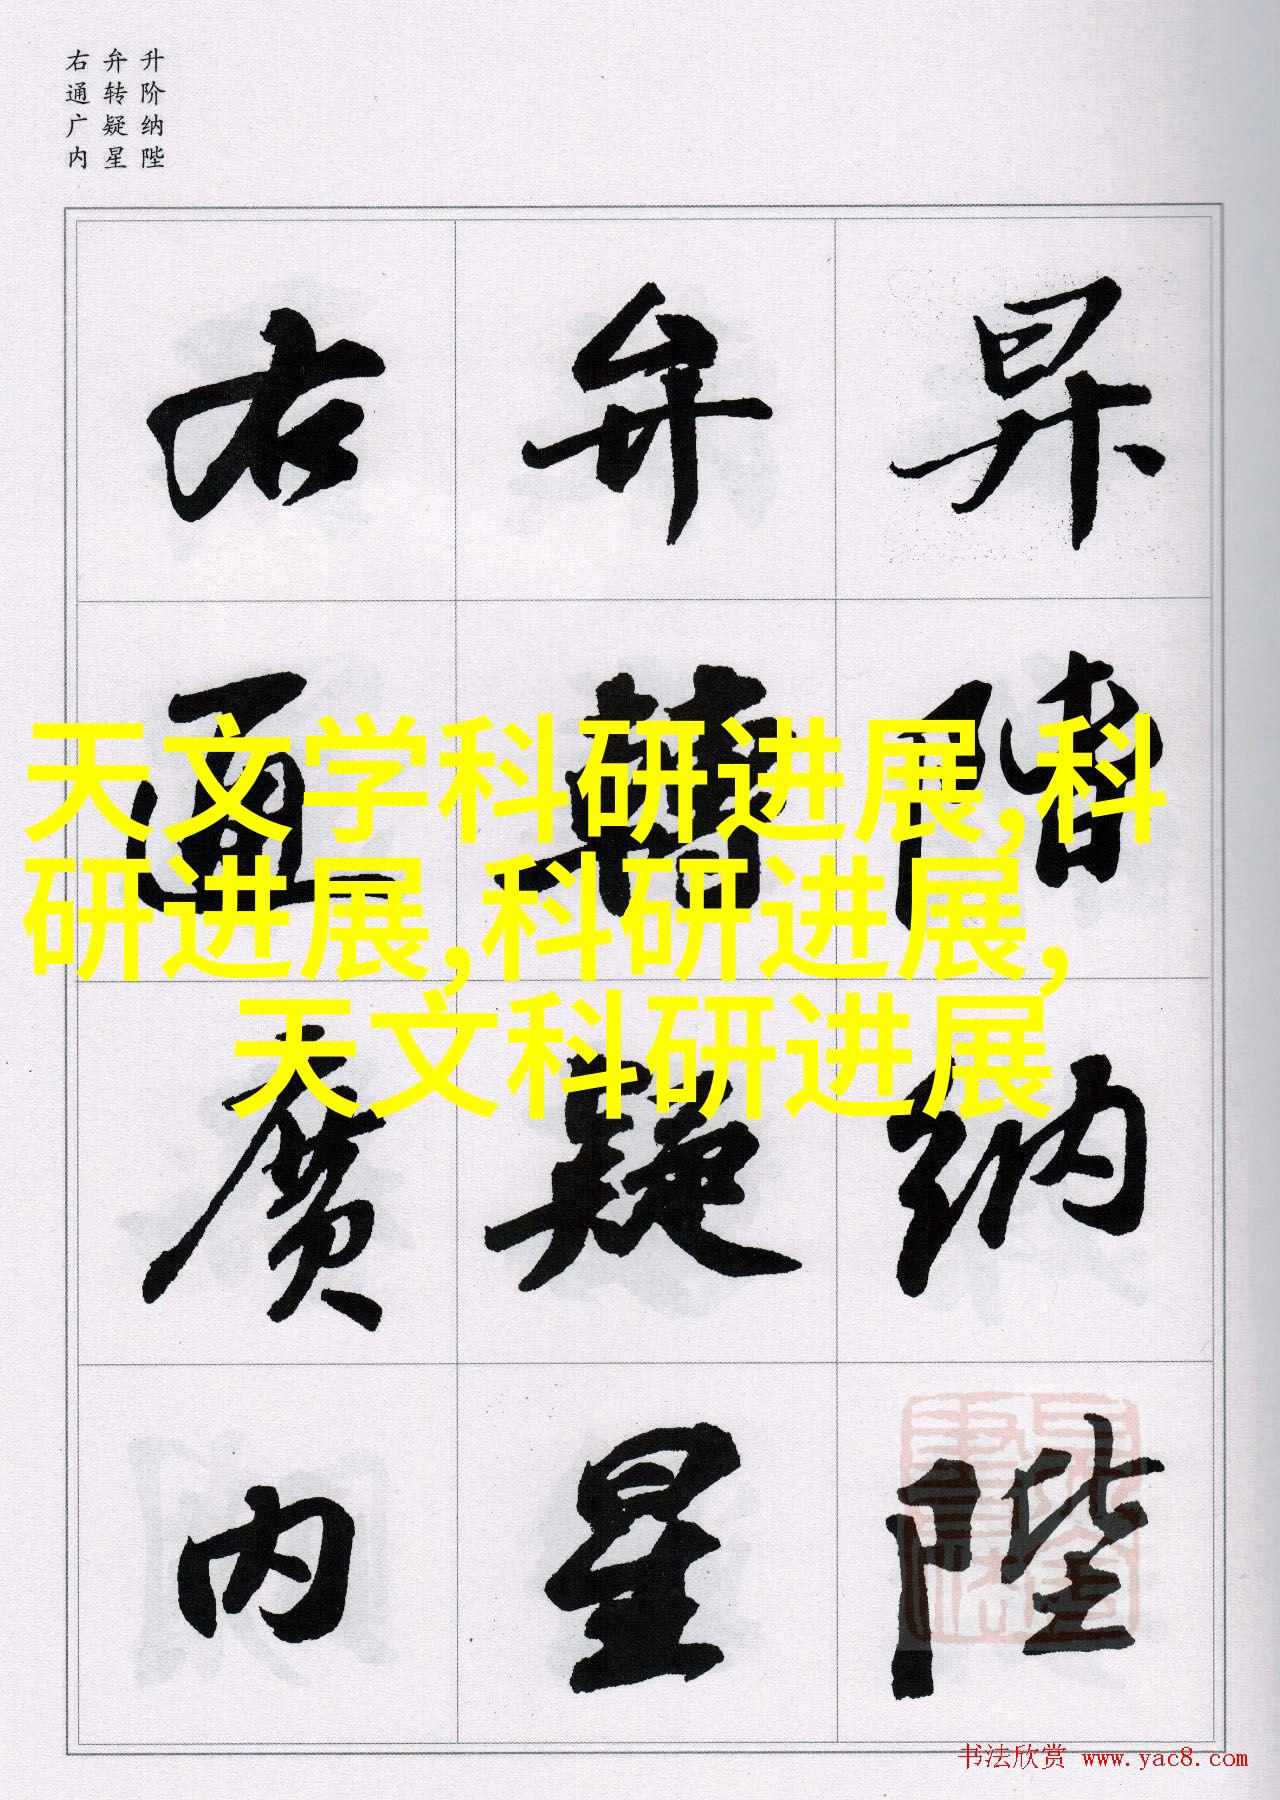 升阶纳陛
弁转疑星
右通广内
昇階納陛
弁轉疑星
右通廣内
天文学科研进展,科
研进展,科研进展,
天文科研进展
书法欣赏 www.yac8.com